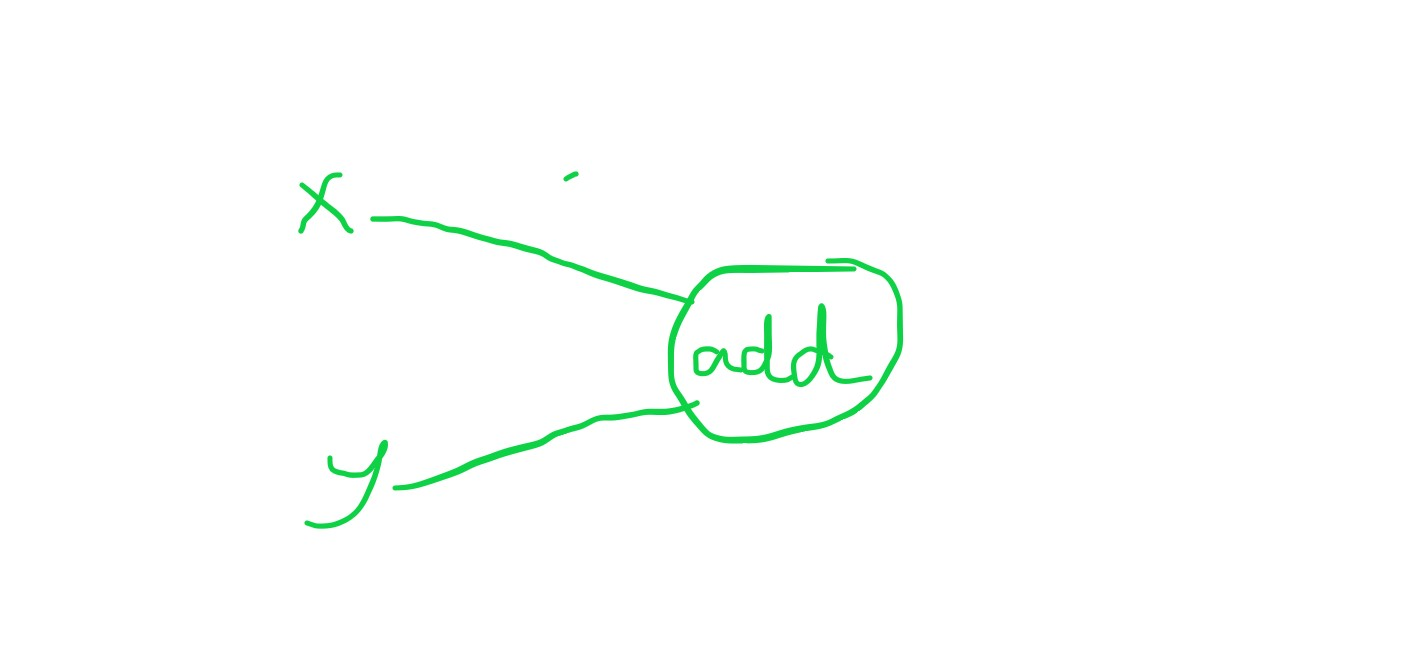 x
add
y